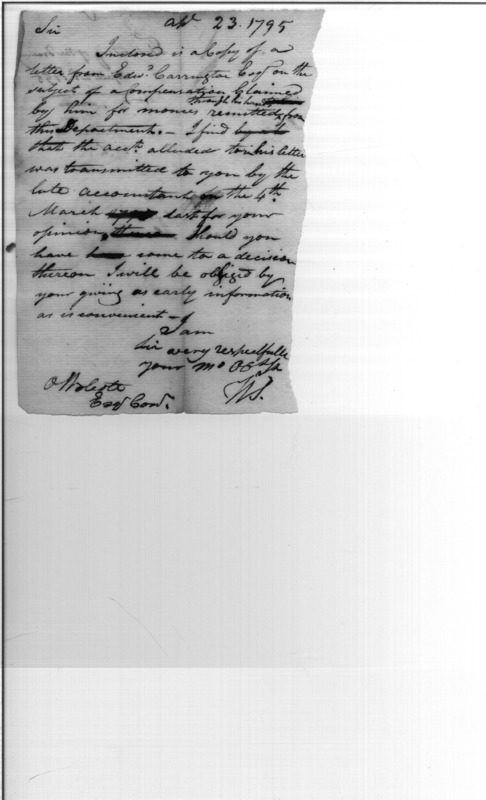 apl 23. 1795
Sir
Inclosed is a Copy of a
letter from Edwd. Carrington Esqr. on the
subject of a compensation Claimed
through his hands
by him for monies remitted from
this Department. – I find
that the acct. alluded to in his letter
was transmitted to you by the
late accountant on the 4th.
March last for your
opinion, should you
have come to a decision
thereon I will be obliged by
your giving as early information
as is convenient –
I am
Sir very respectfully
your Mo Obt St
O Wolcott
Esqr Com.
WS.